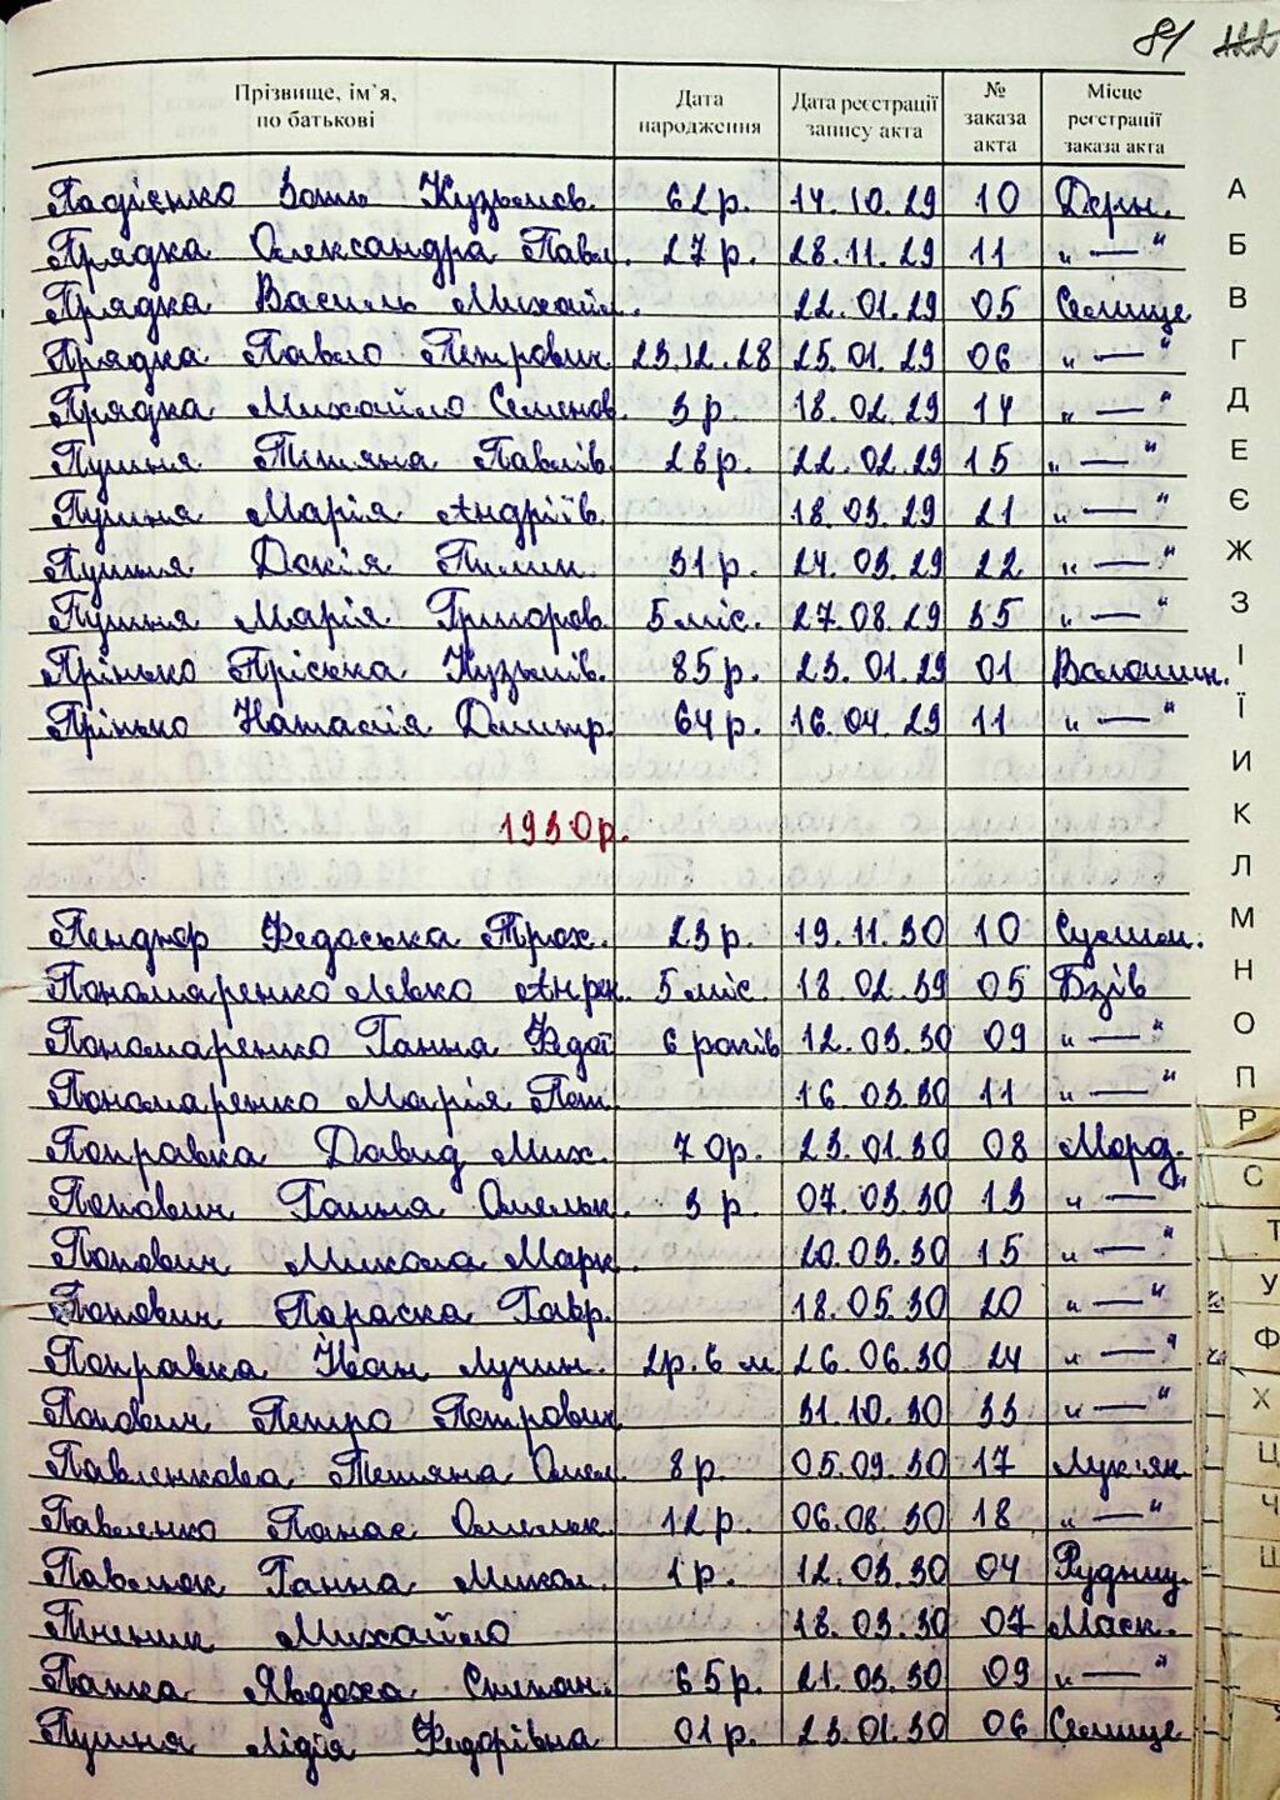 81 122
Прізвище, ім'я, по батькові Дата народження Дата реєстрації запису акта № заказа акта Місце реєстрації заказа акта
Падієнко Кузьмов. 62 р. 14.10.29 10 Дерн.
Прядка Олександра Павл. 27 р. 28.11.29 11 "—"
Прядка Василь Михайл. 22.01.29 05 Селище
Прядка Павло Петрович 23.12.28 25.01.29 06 "—"
Прядка Михайло Семенов. 3 р. 18.02.29 14 "—"
Пушня Тетяна Павлів. 28 р. 22.02.29 15 "—"
Пушня Марія Андріїв. 18.03.29 21 "—"
Пушня Докія Пилип. 31 р. 24.03.29 22 "—"
Пушня Марія Григоров. 5 міс. 27.08.29 35 "—"
Прінько Пріська Кузьмів. 85 р. 23.01.29 01 Волошин.
Прінько Наталія Дмитр. 64 р. 16.04.29 11 "—"
1930р.
Пенджер Федоська Трох. 23 р. 19.11.30 10 Сулим.
Пономаренко Левко 5 міс. 18.02.39 05 Бзів
Пономаренко Ганна Федот 6 років 12.03.30 09 "—"
Пономаренко Марія Пет. 16.03.30 11 "—"
Поправка Давид Мих. 70р. 23.01.30 08 Морд.
Попович Ганна Омельк. 3 р. 07.03.30 13 "—"
Попович Микола Марк. 20.03.30 15 "—"
Попович Параска Гавр. 18.05.30 20 "—"
Поправка Іван Лучин. 2р. 6 м 26.06.30 24 "—"
Попович Петро Петрович 31.10.30 33 "—"
Павленкова Тетяна Омел. 8 р. 05.09.30 17 Лук'ян.
Павленко Панас Омельк. 12 р. 06.08.30 18 "—"
Павлюк Ганна Микол. 1 р. 12.03.30 04 Рудниц.
Михайло 18.03.30 07 Маск.
Папка Явдоха Степан. 65 р. 21.03.30 09 "—"
Пушня Лідія Федорівна 01 р. 23.01.30 06 Селище
А
Б
В
Г
Д
Е
Є
Ж
З
І
Ї
И
К
Л
М
Н
О
П
Р
С
Т
У
Ф
Х
Ц
Ч
Ш